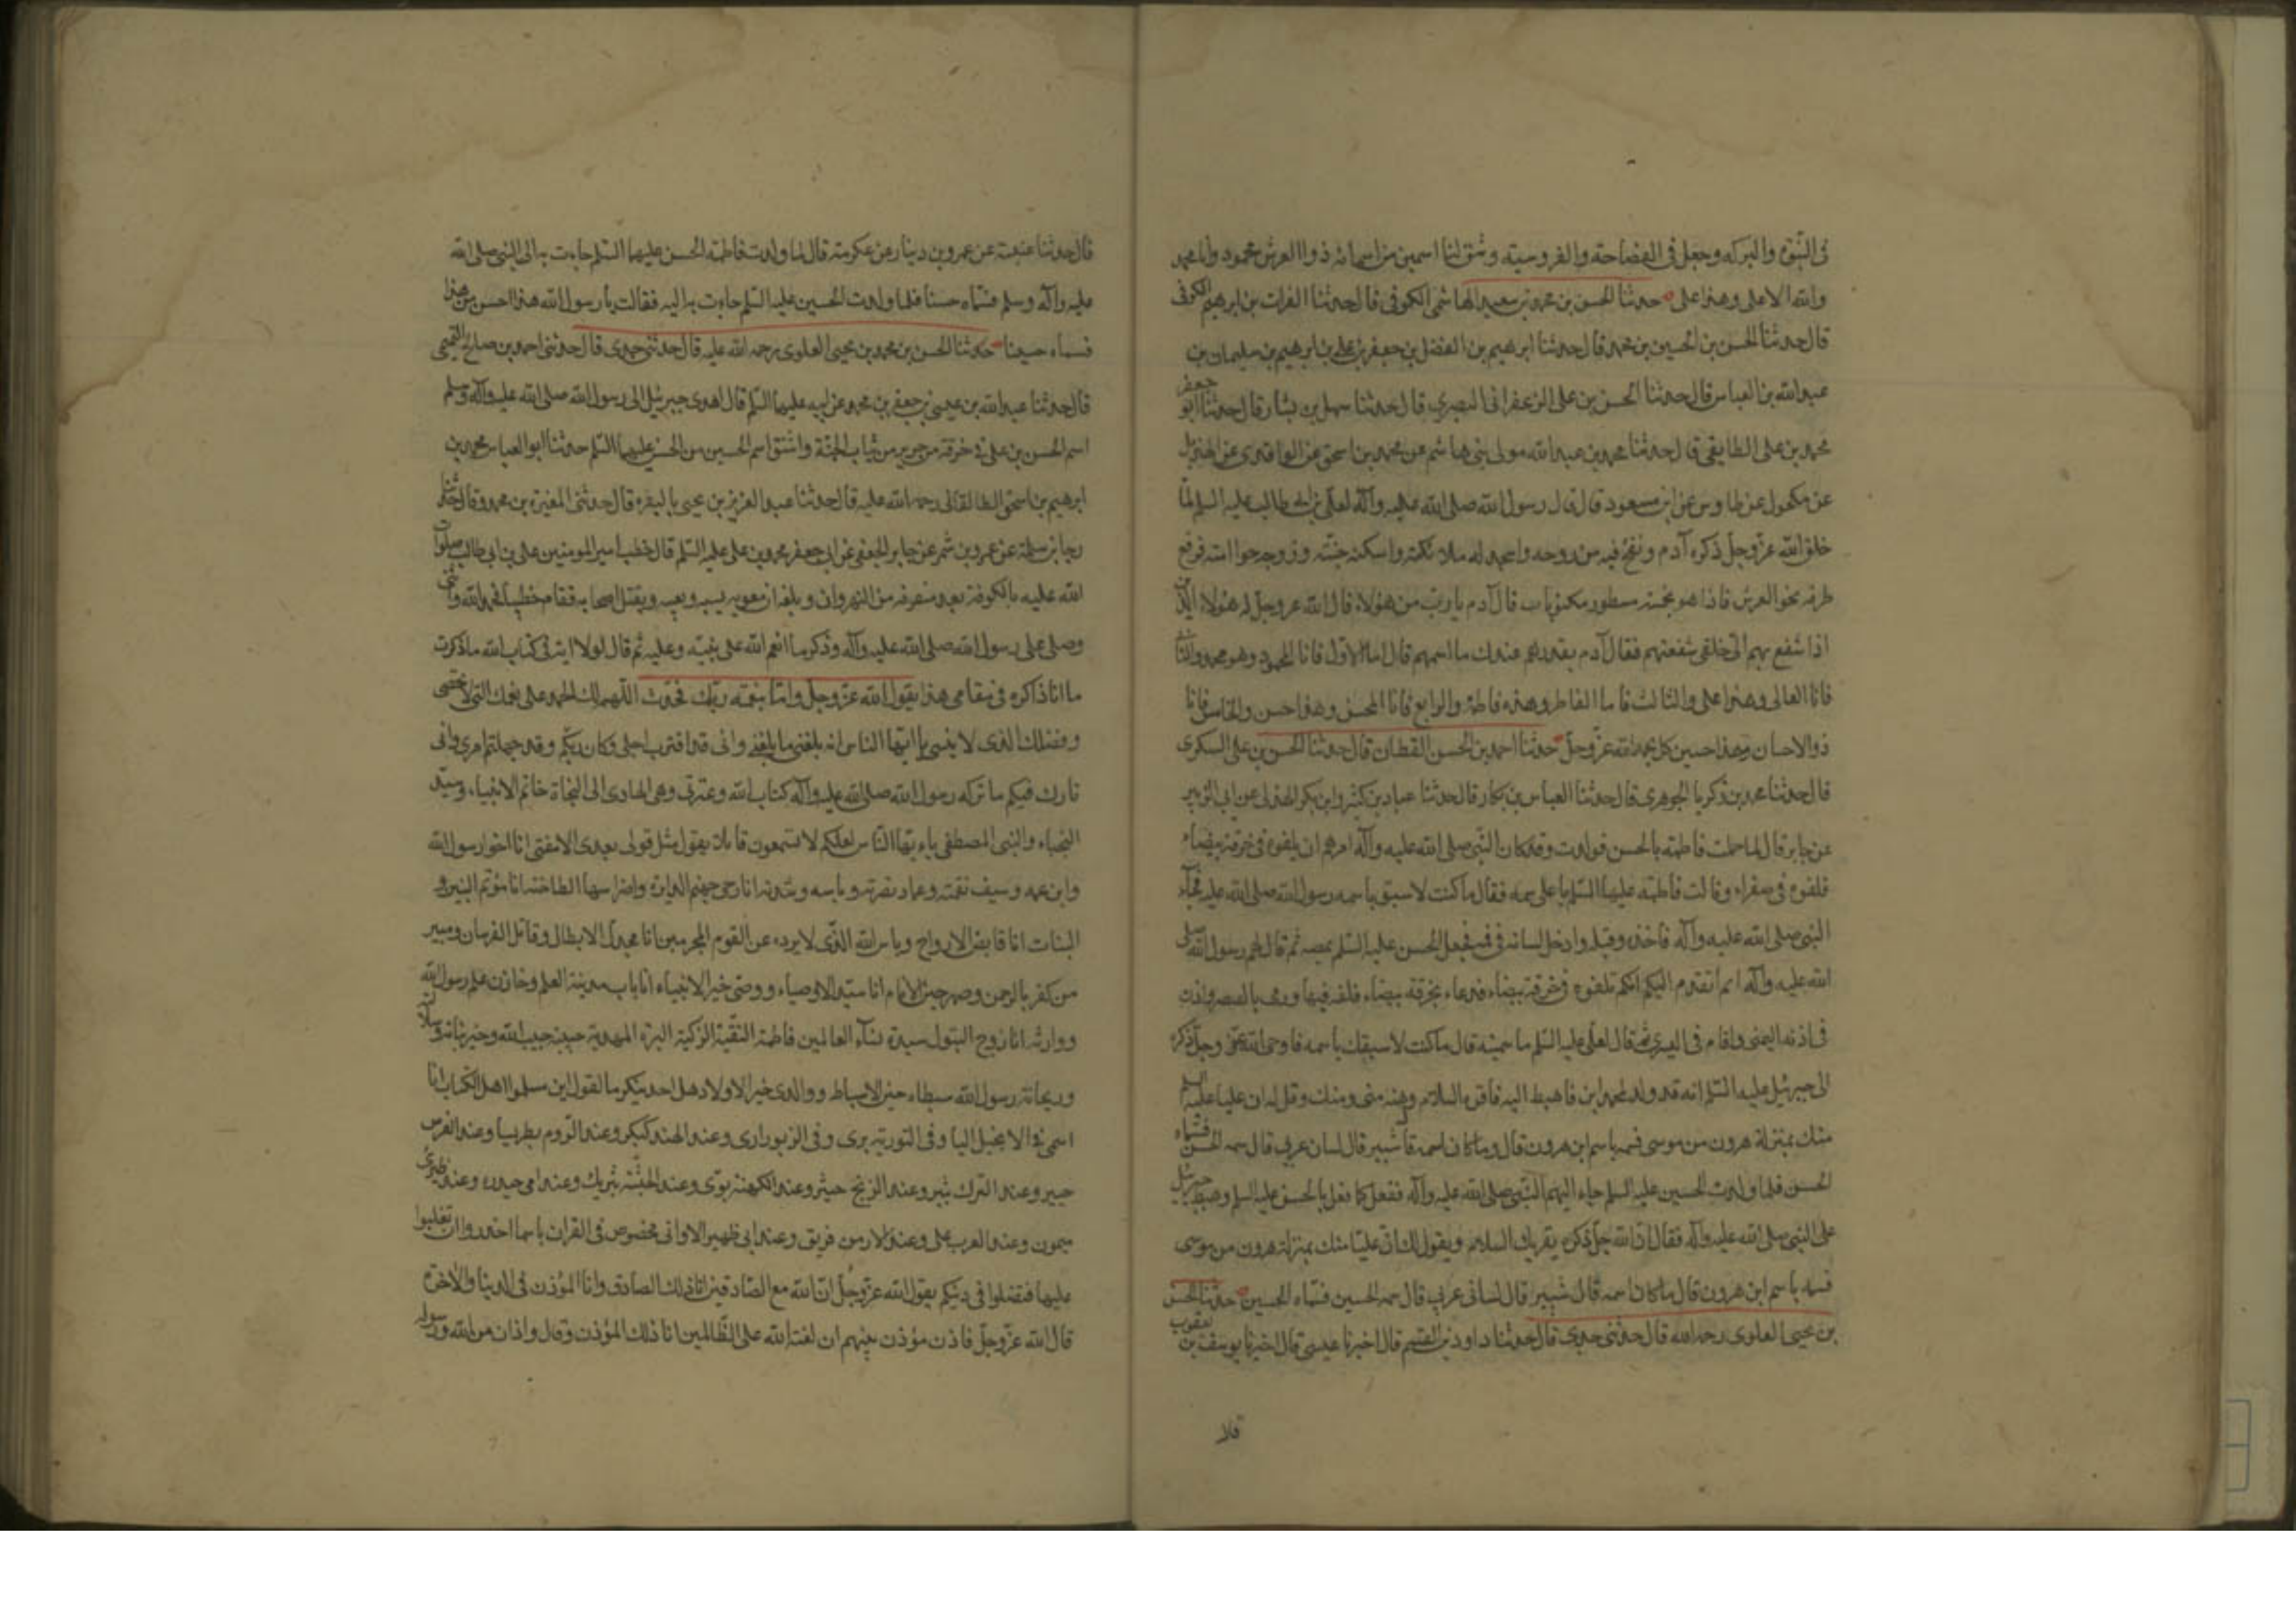 فى النبوة والبركة وجعل فى الفصاحة والفروسية وشق لنا اسمين من اسمائه ذو العرش محمود وانا محمد
والله الاعلى وهذا على حدثنا الحسن بن محمد بن سعيد الهاشمى الكوفى قال حدثنا الفرات بن ابرهيم الكوفى
قال حدثنا الحسن بن الحسين بن محمد قال حدثنا ابرهيم بن الفضل بن جعفر بن على بن ابرهيم بن سليمان بن
عبد الله بن العباس قال حدثنا الحسن بن على الزعفرانى البصرى قال حدثنا سهل بن بشار قال حدثنا ابو جعفر
محمد بن على الطايفى قال حدثنا محمد بن عبد الله مولى بنى هاشم عن محمد بن اسحق عن الواقدى عن الهذيل
عن مكحول عن طاوس عن ابن مسعود قال قال رسول الله صلى الله عليه وآله لعلى بن ابى طالب عليه السلم لما
خلق الله عز وجل ذكره آدم ونفخ فيه من روحه واسجد له ملائكته واسكنه جنته وزوجه حوا امته فرفع
طرفه نحو العرش فاذا هو بخمسة سطور مكتوبات قال آدم يا رب من هؤلاء قال الله عز وجل له هؤلاء الذين
اذا شفع بهم الى خلقى شفعتهم فقال آدم بقدرهم عندك ما اسمهم قال اما الاول فانا المحمود وهو محمد والثانى
فانا العالى وهذا على والثالث فانا الفاطر وهذه فاطمة والرابع فانا المحسن وهذا حسن والخامس فانا
ذو الاحسان وهذا حسين كل يحمد الله عز وجل حدثنا احمد بن الحسن القطان قال حدثنا الحسن بن على السكرى
قال حدثنا محمد بن زكريا الجوهرى قال حدثنا العباس بن بكار قال حدثنا عباد بن كثير وابو بكر الهذلى عن ابى الزبير
عن جابر قال لما حملت فاطمة بالحسن فولدت وقد كان النبى صلى الله عليه وآله امرهم ان يلفوه فى خرقة بيضاء
فلفوه فى صفراء وقالت فاطمة عليها السلم يا على سمه فقال ما كنت لاسبق باسمه رسول الله صلى الله عليه فجآء
النبى صلى الله عليه وآله فاخذه وقبله وادخل لسانه فى فيه فجعل الحسن عليه السلم يمصه ثم قال لهم رسول الله صلى
الله عليه وآله الم اتقدم اليكم انكم تلفوه فى خرقة بيضاء فدعاء بخرقة بيضاء فلفه فيها ورمى بالصفر واذن
فى اذنه اليمنى واقام فى اليسرى ثم قال لعلى عليه السلم ما سميته قال ما كنت لاسبقك باسمه فاوحى الله عز وجل ذكره
الى جبرئيل عليه السلم انه قد ولد لمحمد ابن فاهبط اليه فاقره السلام وهنه منى ومنك وقل له ان عليا عليه السلم
منك بمنزلة هرون من موسى فسمه باسم ابن هرون قال وما كان اسمه قال شبير قال لسان عربى قال سمه الحسن فسماه
الحسن فلما ولدت الحسين عليه السلم جاء اليهم النبى صلى الله عليه وآله ففعل كما فعل بالحسن عليه السلم وهبط جبرئيل
على النبى صلى الله عليه وآله فقال ان الله جل ذكره يقريك السلام ويقول لك ان عليا منك بمنزلة هرون من موسى
فسمه باسم ابن هرون قال ما كان اسمه قال شبير قال لسانى عربى قال سمه الحسين فسماه الحسين حدثنا الحسن
بن يحيى العلوى رحمه الله قال حدثنى جدى قال حدثنا داود بن القسم قال اخبرنا عيسى قال اخبرنا يوسف بن يعقوب
قال حدثنا عن عمرو بن دينار عن عكرمة قال لما ولدت فاطمة الحسن عليهما السلم جاءت به الى النبى صلى الله
عليه وآله وسلم فسماه حسنا فلما ولدت الحسين عليه السلم جاءت به اليه فقالت يا رسول الله هذا احسن من هذا
فسماه حسينا حدثنا الحسن بن محمد بن يحيى العلوى رحمه الله عليه قال حدثنى جدى قال حدثنى احمد بن صالح التميمى
قال حدثنا عبد الله بن عيسى بن جعفر بن محمد عن ابيه عليهما السلم قال اهدى جبرئيل الى رسول الله صلى الله عليه وآله وسلم
اسم الحسن بن على فى خرقة من حرير من ثياب الجنة واشتق اسم الحسين من الحسن عليهما السلم حدثنا ابو العباس محمد بن
ابرهيم بن اسحق الطالقانى رحمه الله عليه قال حدثنا عبد العزيز بن يحيى بالبصره قال حدثنى المغيرة بن محمد وقال حدثنا
رجا بن سلمة عن عمرو بن شمر عن جابر الجعفى عن ابى جعفر محمد بن على عليه السلم قال خطب امير المومنين على بن ابى طالب صلوات
الله عليه بالكوفة بعد منصرفه من النهروان وبلغه ان معويه يسبه ويعيبه ويقتل اصحابه فقام خطيبا فحمد الله واثنى
وصلى على رسول الله صلى الله عليه وآله وذكر ما انعم الله على نبيه وعليه ثم قال لولا اية فى كتاب الله ما ذكرت
ما انا ذاكره فى مقامى هذا يقول الله عز وجل واما بنعمة ربك فحدث اللهم لك الحمد على نعمك التى لا تحصى
وفضلك الذى لا ينسى يا ايها الناس انه بلغنى ما بلغنى وانى قد اقترب اجلى وكان بكم وقد جهلتم امرى وانى
تارك فيكم ما تركه رسول الله صلى الله عليه وآله كتاب الله وعترتى وهى الهادى الى النجاة خاتم الانبياء، وسيد
النجباء والنبى المصطفى يا ايها الناس لعلكم لا تسمعون قائلا يقول مثل قولى بعدى الا مفتر انا اخو رسول الله
وابن عمه وسيف نقمته وعماد نصرته وباسه وشدته انا رحى جهنم الدايرة واضراسها الطاحنة انا موتم البنين و
البنات انا قابض الارواح وباس الله الذى لا يرده عن القوم المجرمين انا مجدل الابطال وقاتل الفرسان ومبير
من كفر بالرحمن وصهر خير الانام انا سيد الاوصياء ووصى خير الانبياء انا باب مدينة العلم وخازن علم رسول الله
ووارثه انا زوج البتول سيدة نسآء العالمين فاطمة التقية الزكية البرة المهدية حبيبة حبيب الله وخير بناته وسلالته
وريحانة رسول الله سبطاه خير الاسباط ووالدى خير الاولاد هل احد ينكر ما اقول اين مسلموا اهل الكتاب انا
اسمى فى الانجيل اليا وفى التورية برى وفى الزبور ارى وعند الهند كبكر وعند الروم بطريسا وعند الفرس
جبير وعند الترك بثير وعند الزنج حيثر وعند الكهنة بوى وعند الحبشة بثريك وعند امى حيدره وعند ظئرى
ميمون وعند العرب على وعند الارمن فريق وعند ابى ظهير الا وانى مخصوص فى القران باسما احذروا ان تغلبوا
عليها فتضلوا فى دينكم يقول الله عز وجل ان الله مع الصادقين انا ذلك الصادق وانا المؤذن فى الدنيا والاخرة
قال الله عز وجل فاذن مؤذن بينهم ان لعنة الله على الظالمين انا ذلك المؤذن وقال واذان من الله ورسوله